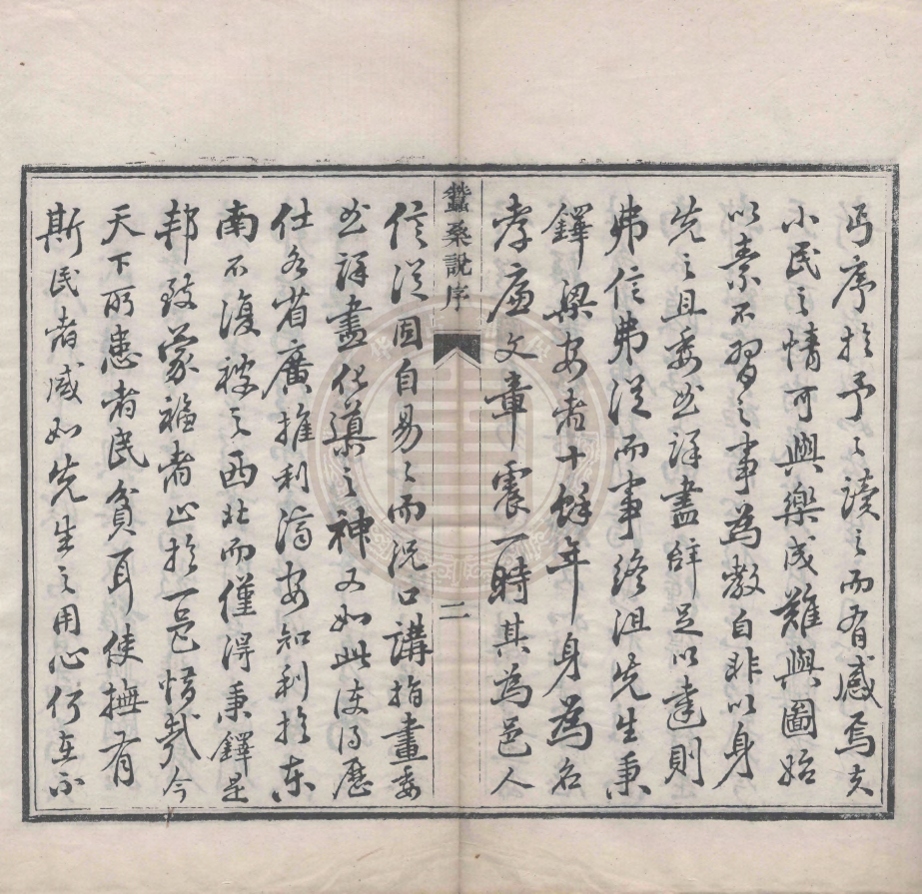 丐序於予予讀之而有感焉夫
小民之情可與樂成難與圖始
以素不習之事為教自非以身
先之且委曲詳盡辭足以達則
弗信弗從而事終沮先生秉
鐸梁安者十餘年身為名
孝廉文章震一時其為邑人
蠶桑說序
二
信從固自易易而況口講指畫委
曲詳盡化導之神又如此使得歷
仕各省廣推利濟安知利於東
南不復被之西北而僅得秉鐸是
邦致蒙福者止於一邑惜哉今
天下所患者民貧耳使撫有
斯民者咸如先生之用心何在不